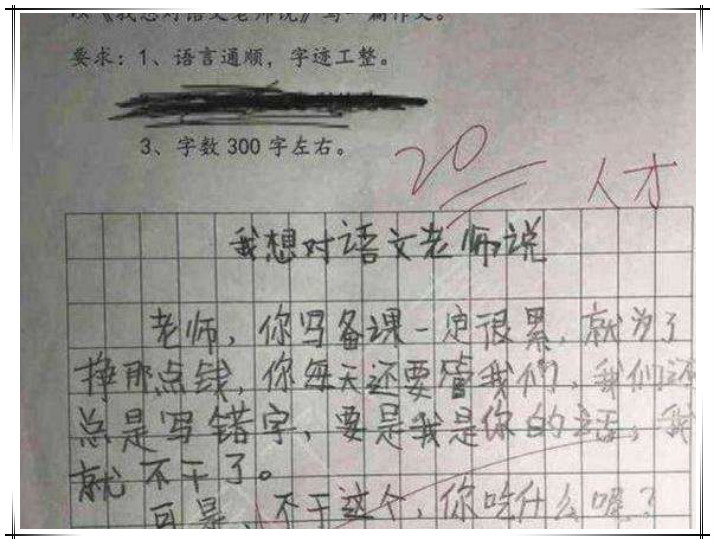 以《我想对语文老师说》写一篇作文。
要求：1、语言通顺，字迹工整。
3、字数 300 字左右。
20
人才
我想对语文老师说
老师，你写备课一定很累，就为了
挣那点钱，你每天还要管我们，我们还
总是写错字，要是我是你的话，我
就不干了。
可是，不干这个，你吃什么喔？